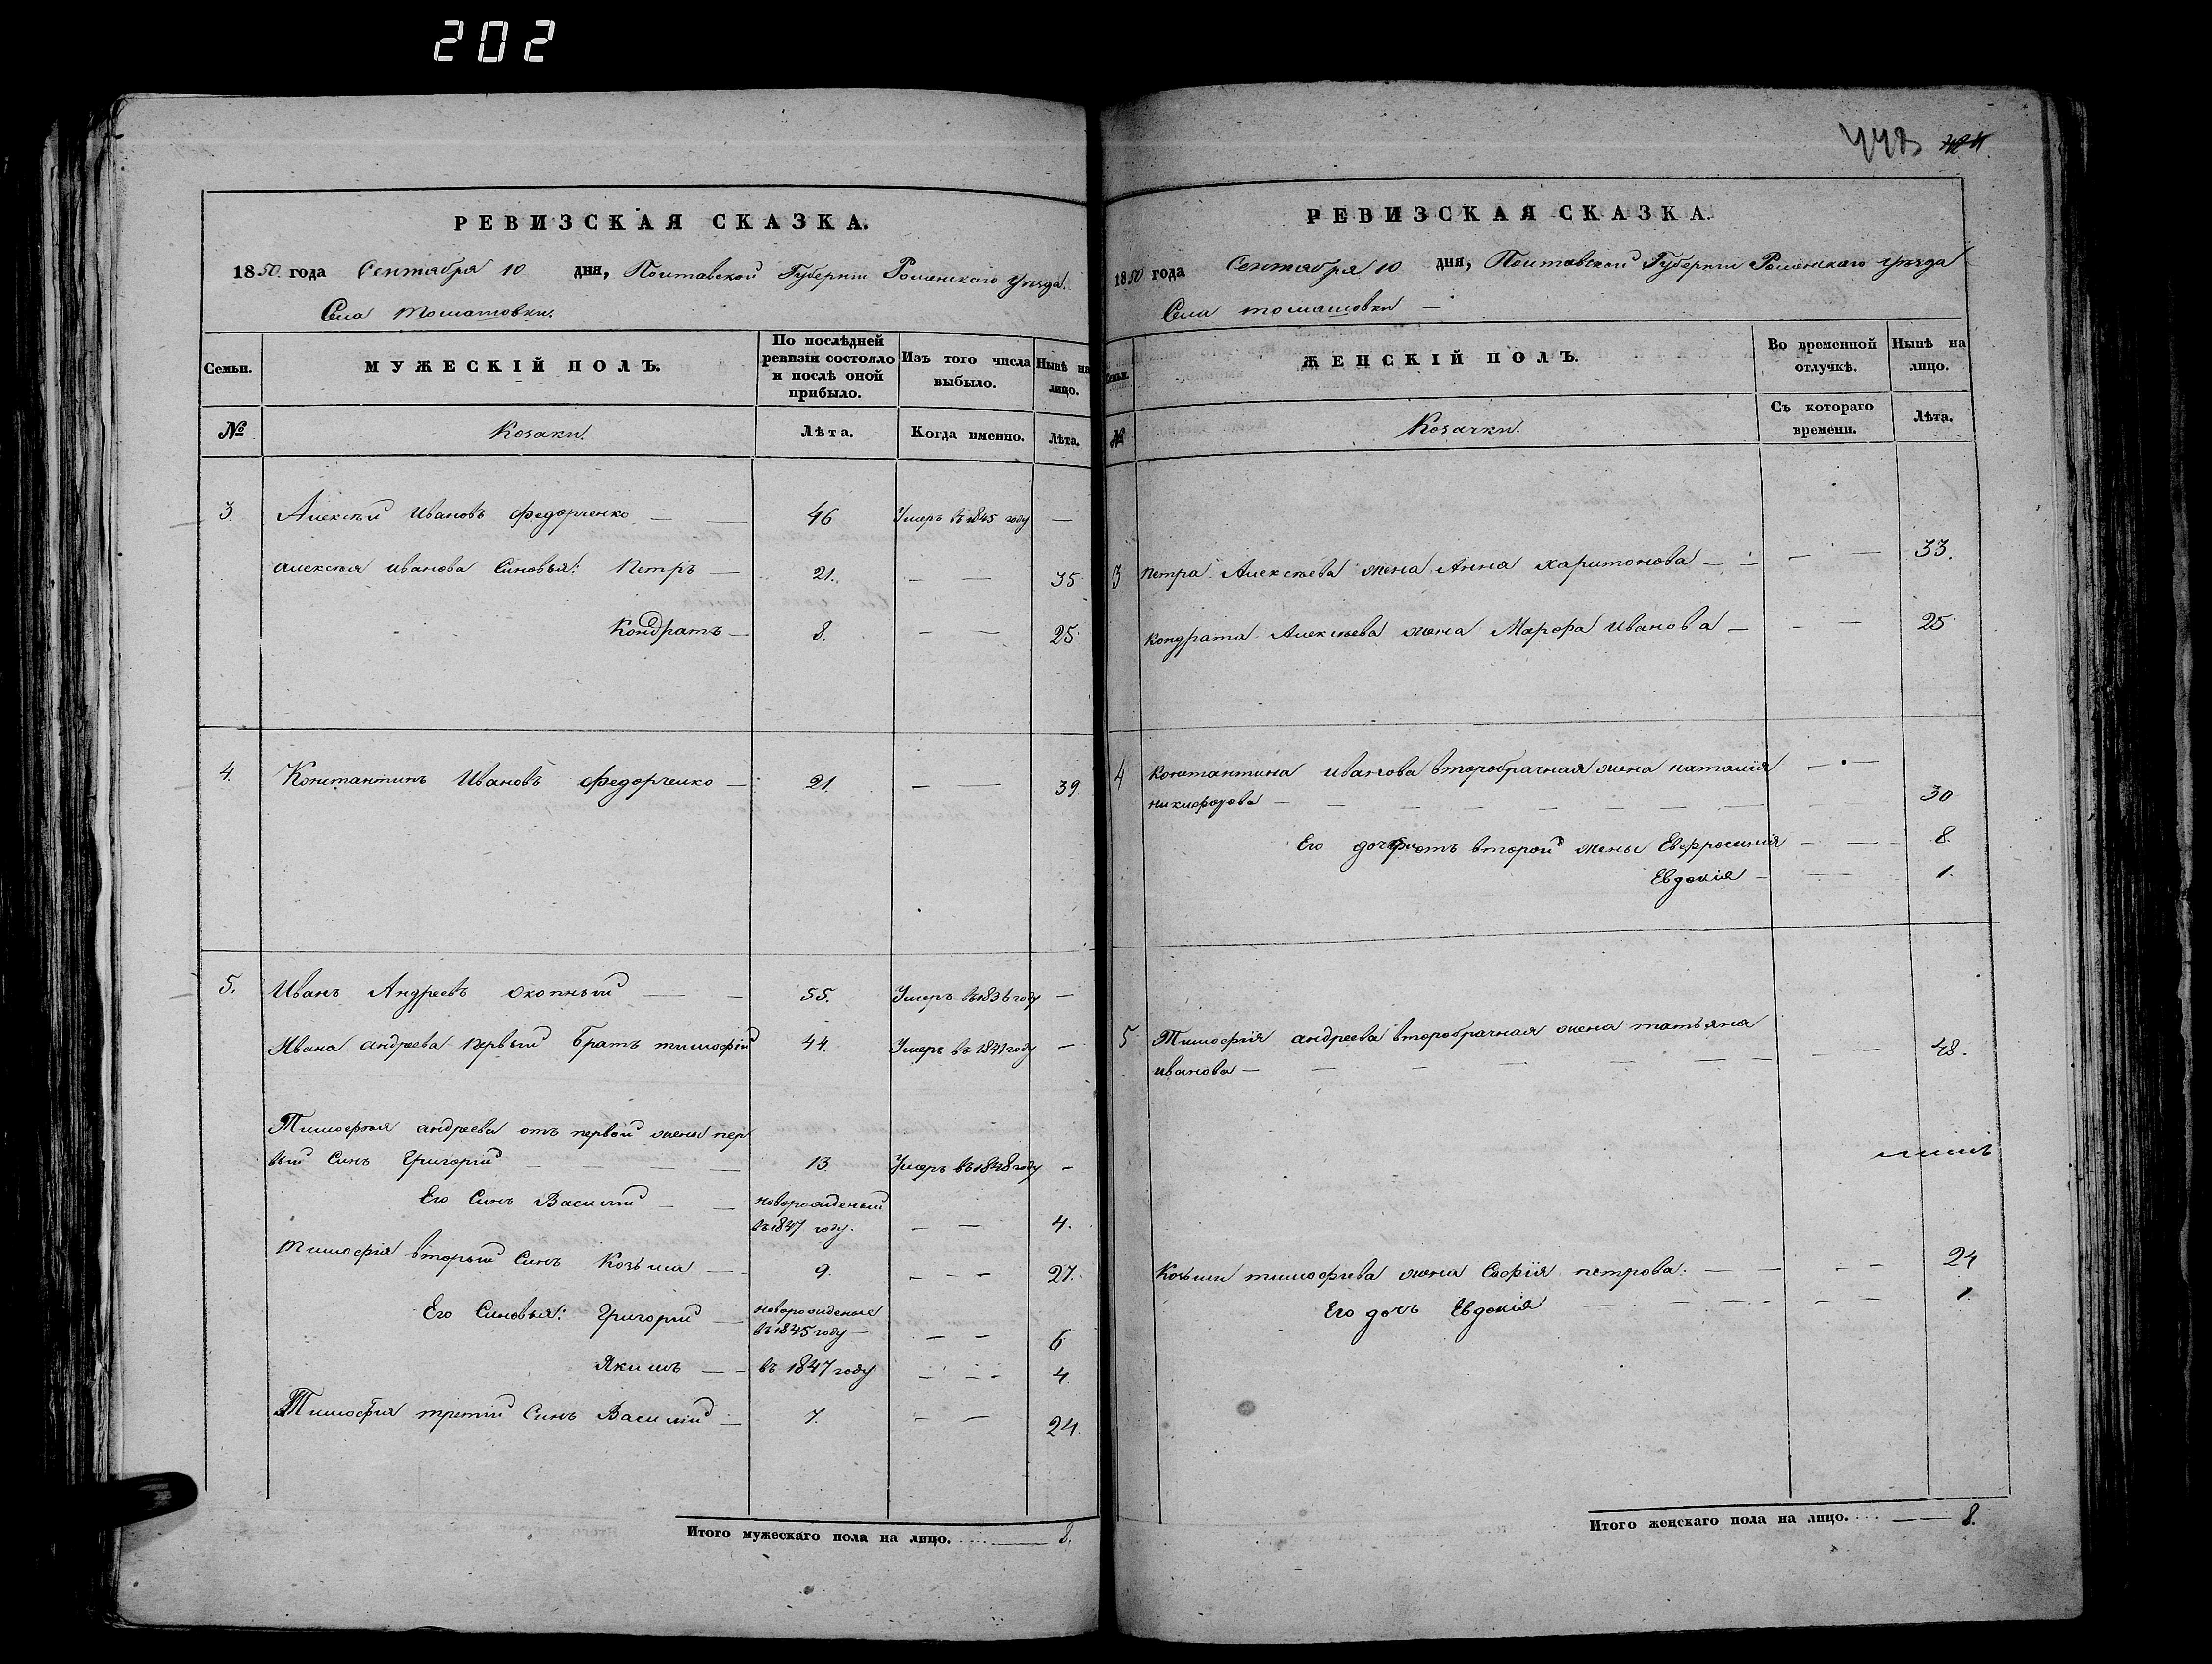 202
443
РЕВИЗСКАЯ СКАЗКА.
1850 года Сентября 10 дня, Полтавской Губерніи Роменскаго уѣзда.
Села томашовки.
Семьи.
МУЖЕСКІЙ ПОЛЪ.
По послѣдней ревизіи состояло и послѣ оной прибыло.
Изъ того числа выбыло.
Нынѣ на лицо.
№
Козаки.
Лѣта.
Когда именно.
Лѣта.
3. Алексѣй Ивановъ Федорченко — — 46 Умеръ въ 1845 году —
алексѣя иванова Синовья: Петръ — 21. — — 35
Кондратъ — 8. — — 25
4. Константинъ Ивановъ Федорченко — 21. — — 39.
5. Иванъ Андреевъ Окопный — — 55. Умеръ въ 1836 году —
Ивана андреева первый Братъ тимофій 44. Умеръ въ 1841 году —
Тимофѣя андреева отъ первой жены пер
вый Синъ Григорій — — — — 13 Умеръ въ 1848 году —
Его Синъ Василій — — новорожденый
въ 1847 году. — — 4.
Тимофія вторый Синъ Козьма — — 9. — — — 27.
Его Синовья: Григорій — новорожденые
въ 1845 году — — — 6
Якимъ — — въ 1847 году — — — 4.
Тимофія третій Синъ Василій — 7. — — 24.
Итого мужескаго пола на лицо. — 8.
РЕВИЗСКАЯ СКАЗКА.
1850 года Сентября 10 дня, Полтавской Губерніи Роменскаго уѣзда
Села томашовки —
Семьи.
ЖЕНСКІЙ ПОЛЪ.
Во временной отлучкѣ.
Нынѣ на лицо.
№
Козачки.
Съ котораго времени.
Лѣта.
3 петра Алексѣева жена Анна харитонова — — — — 33.
кондрата Алексѣева жена Марфа Иванова — — — 25
4 константина иванова второбрачная жена наталія — —
никифорова — — — — — — — — 30
Его дочери отъ второй жены Евфросинія — — — 8.
Евдокія — — — 1.
5 Тимофія андреева второбрачная жена татьяна
иванова — — — — — — — — 48.
Козьми тимофѣева жена Софія петрова. — — — — 24
Его дочь Евдокія — — — — — — 1.
Итого женскаго пола на лицо. — — 8.